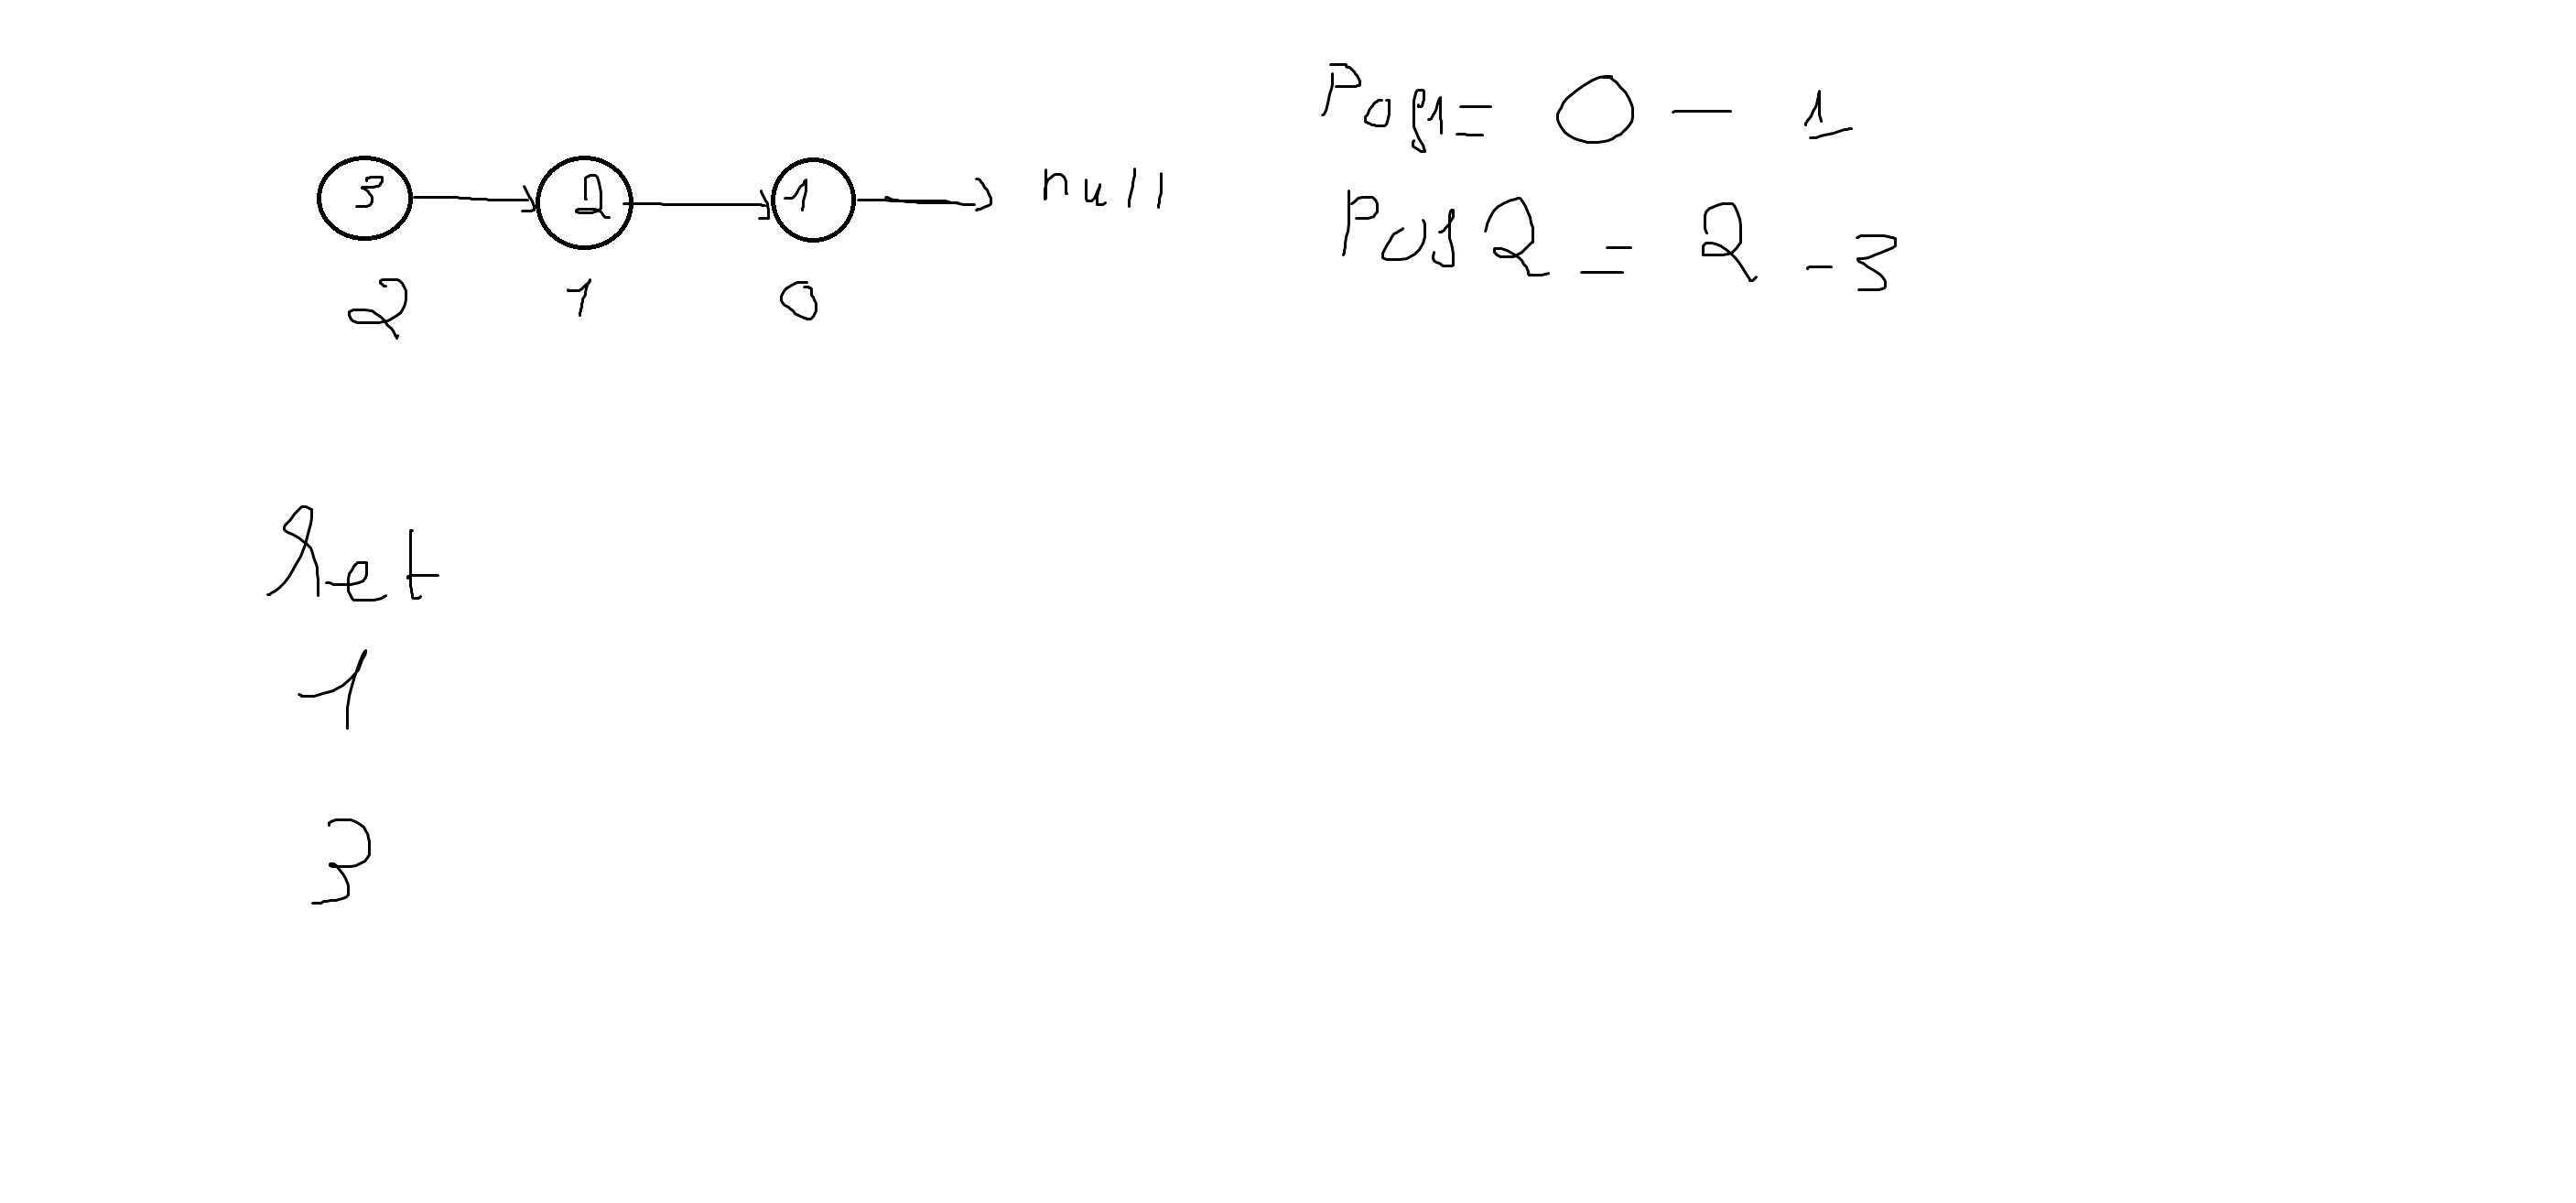 3 2 1 null
2 1 0
Pos1= 0 - 1
Pos2 = 2 - 3
Ret
1
3